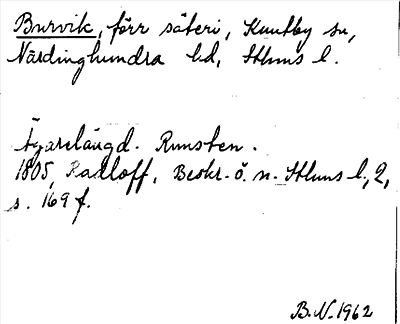 Burvik, förr säteri, Knutby sn,
Närdinghundra hd, Sthlms l.
Ägarelängd. Runsten.
1805, Radloff, Beskr. ö. n. Sthlms l., 2,
s. 169 f.
B.N. 1962